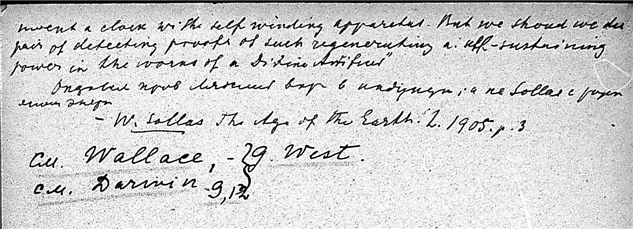 invent a clock with self winding apparatus. But we should we des
pair of detecting proofs of such regenerating a. self-sustaining
power in the works of a Divine Artificer"
в индукции; а не Sollas с
– W. Sollas The Age of the Earth. L. 1905. p. 3
см. Wallace, – } 9. West.
см. Darwin – 9, 12